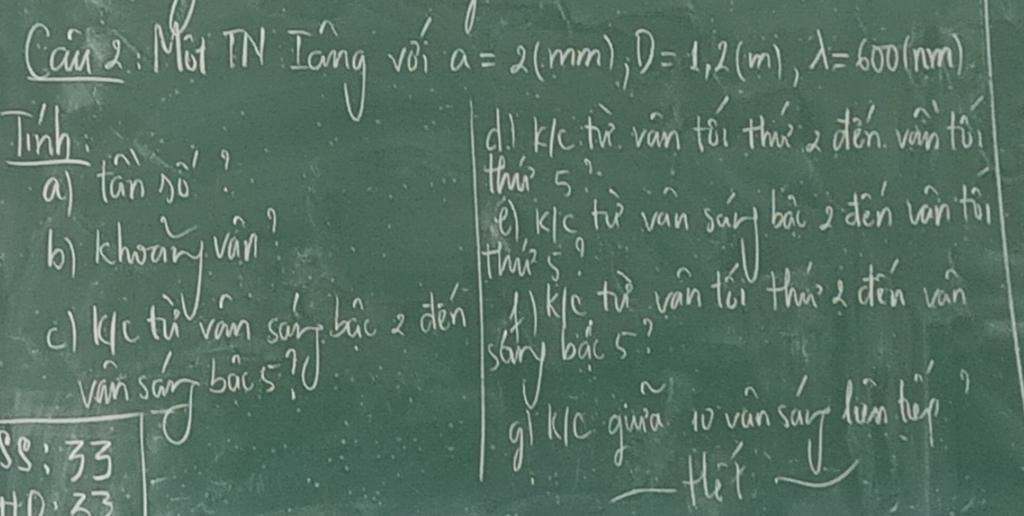 Câu 2: Một TN Iâng với a = 2(mm), D = 1,2(m), λ = 600(nm)
Tính:
a) tần số?
b) khoảng vân?
c) k/c từ vân sáng bậc 2 đến
vân sáng bậc 5?
d) k/c từ vân tối thứ 2 đến vân tối
thứ 5?
e) k/c từ vân sáng bậc 2 đến vân tối
thứ 5?
f) k/c từ vân tối thứ 2 đến vân
sáng bậc 5?
g) k/c giữa 10 vân sáng liên tiếp?
— Hết —
SS: 33
HD: 33